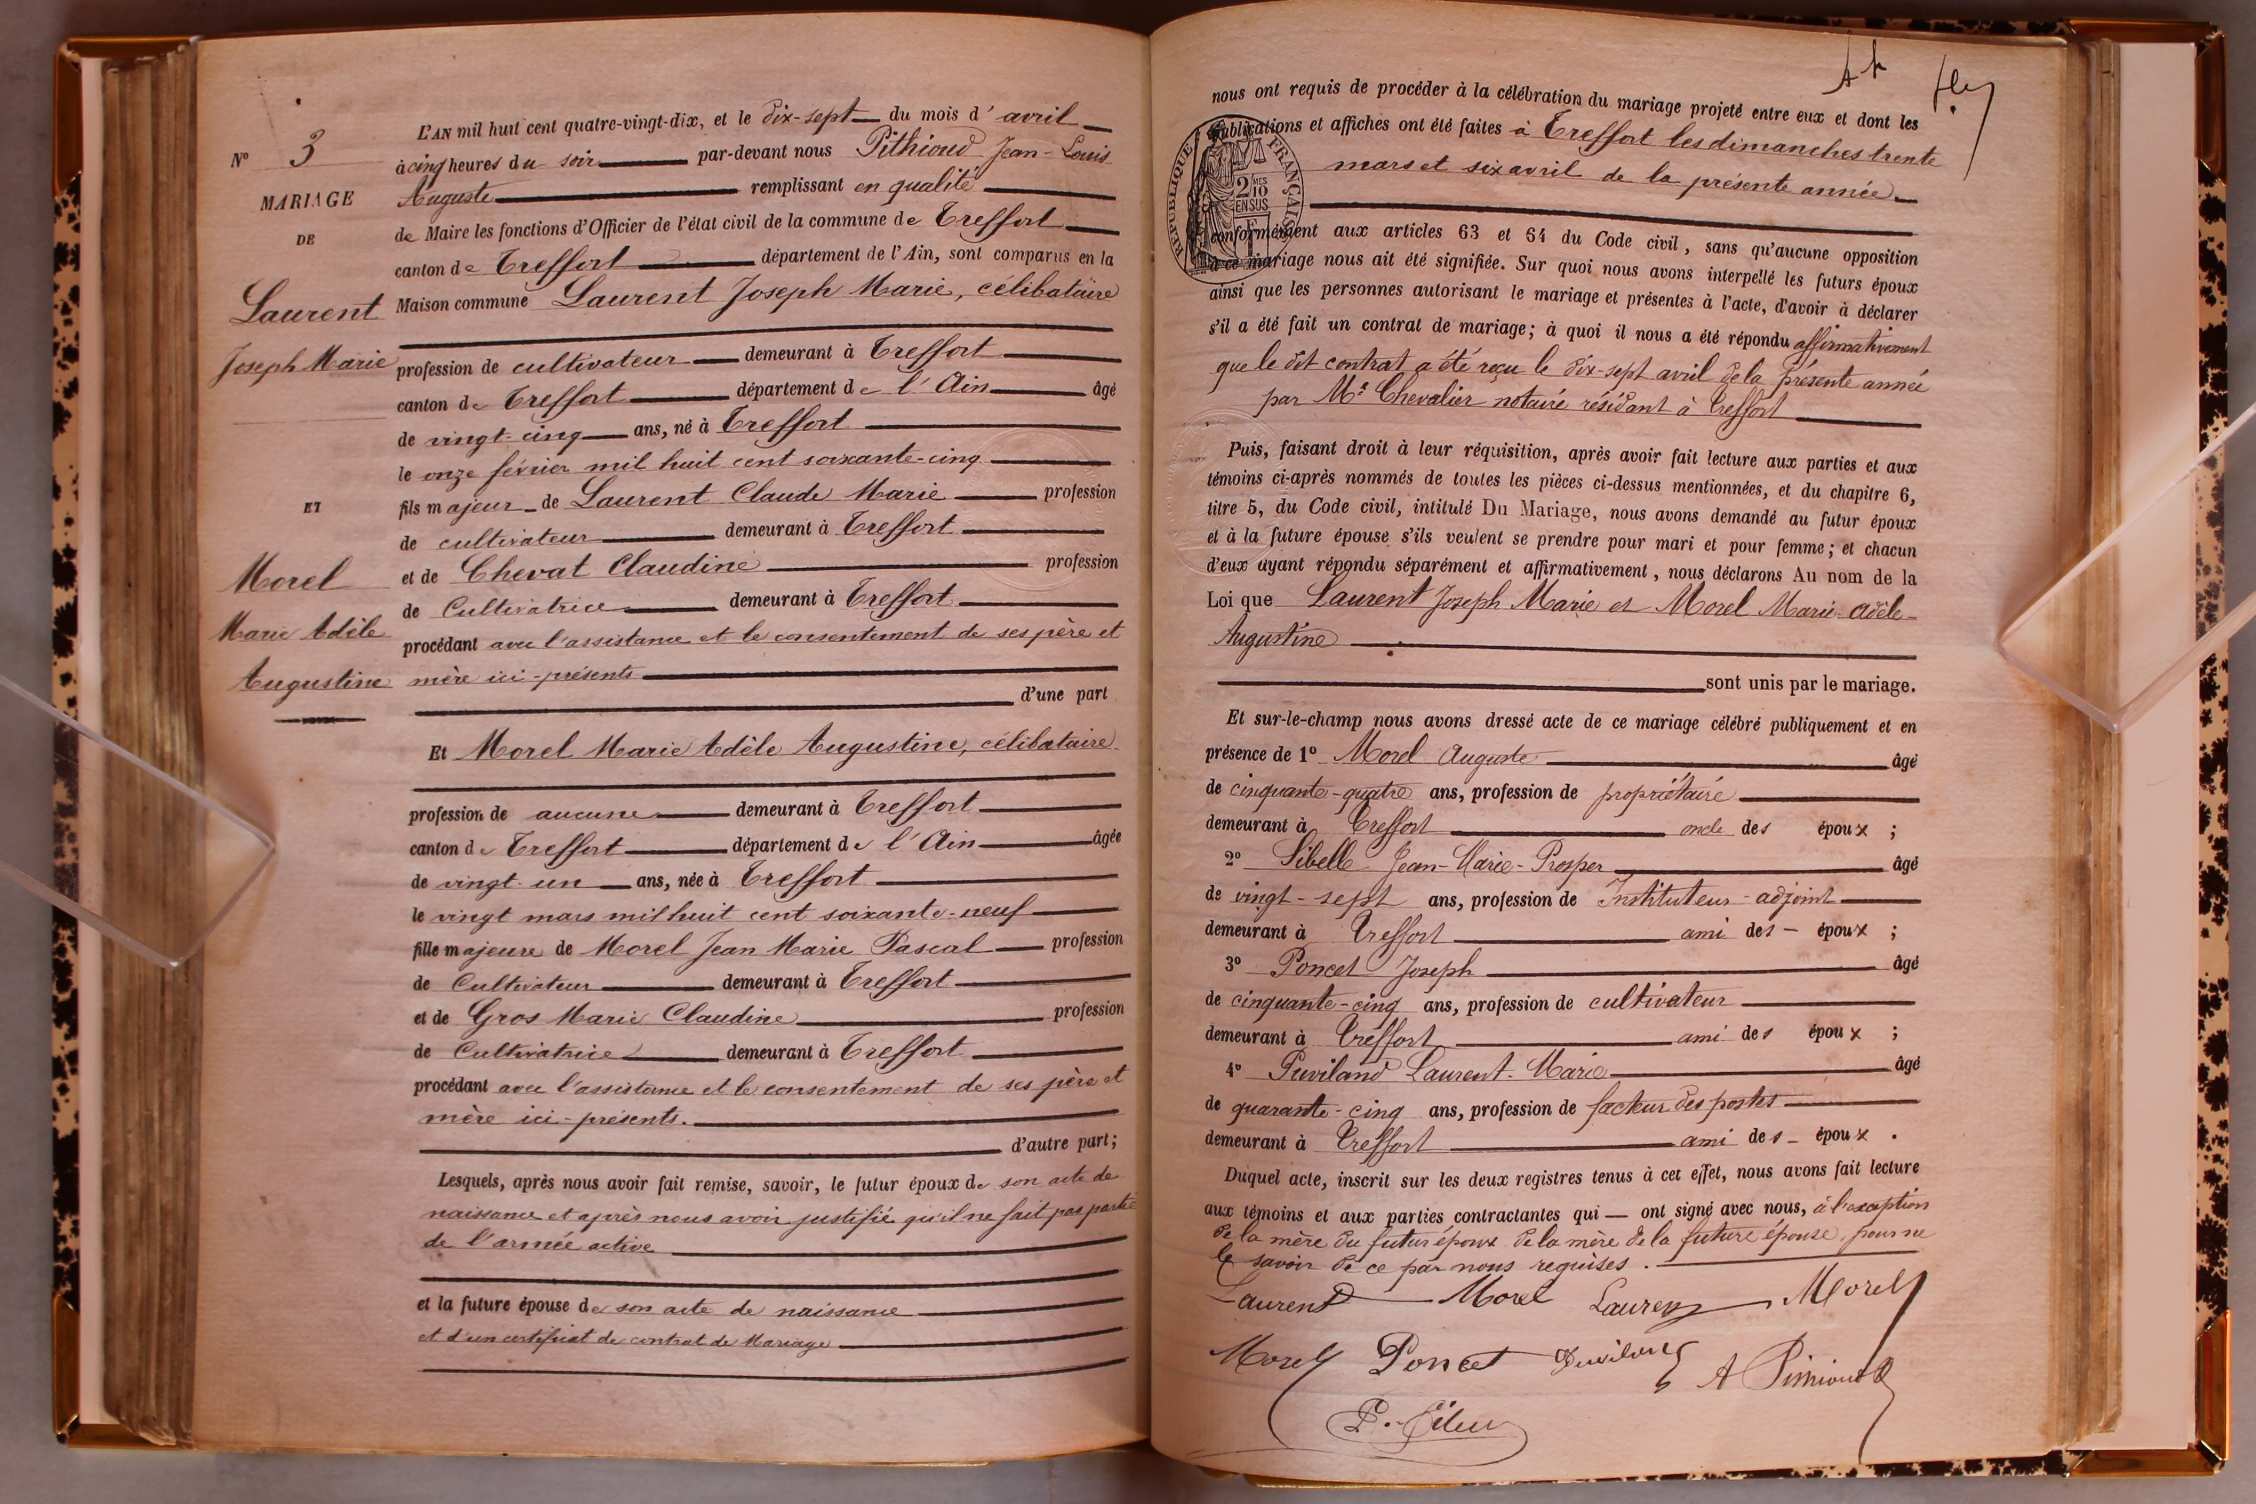 N° 3
MARIAGE
DE
Laurent
Joseph Marie
ET
Morel
Marie Adèle
Augustine
L'AN mil huit cent quatre-vingt-dix, et le dix-sept du mois d' avril
à cinq heures du soir par-devant nous Pithioud Jean-Louis
Auguste remplissant en qualité
de Maire les fonctions d'Officier de l'état civil de la commune de Treffort
canton de Treffort département de l'Ain, sont comparus en la
Maison commune Laurent Joseph Marie, célibataire
profession de cultivateur demeurant à Treffort
canton de Treffort département de l'Ain âgé
de vingt-cinq ans, né à Treffort
le onze février mil huit cent soixante-cinq
fils majeur de Laurent Claude Marie profession
de cultivateur demeurant à Treffort
et de Chevat Claudine profession
de Cultivatrice demeurant à Treffort
procédant avec l'assistance et le consentement de ses père et
mère ici-présents
d'une part
Et Morel Marie Adèle Augustine, célibataire
profession de aucune demeurant à Treffort
canton de Treffort département de l'Ain âgée
de vingt-un ans, née à Treffort
le vingt mars mil huit cent soixante-neuf
fille majeure de Morel Jean Marie Pascal profession
de Cultivateur demeurant à Treffort
et de Gros Marie Claudine profession
de Cultivatrice demeurant à Treffort
procédant avec l'assistance et le consentement de ses père et
mère ici-présents.
d'autre part;
Lesquels, après nous avoir fait remise, savoir, le futur époux de son acte de
naissance et après nous avoir justifié qu'il ne fait pas partie
de l'armée active
et la future épouse de son acte de naissance
et d'un certificat de contrat de Mariage
nous ont requis de procéder à la célébration du mariage projeté entre eux et dont les
publications et affiches ont été faites à Treffort les dimanches trente
mars et six avril de la présente année
RÉPUBLIQUE FRANÇAISE
2 MES
10
EN SUS
conformément aux articles 63 et 64 du Code civil, sans qu'aucune opposition
à ce mariage nous ait été signifiée. Sur quoi nous avons interpellé les futurs époux
ainsi que les personnes autorisant le mariage et présentes à l'acte, d'avoir à déclarer
s'il a été fait un contrat de mariage; à quoi il nous a été répondu affirmativement
que le dit contrat a été reçu le dix-sept avril de la présente année
par Me Chevalier notaire résidant à Treffort
Puis, faisant droit à leur réquisition, après avoir fait lecture aux parties et aux
témoins ci-après nommés de toutes les pièces ci-dessus mentionnées, et du chapitre 6,
titre 5, du Code civil, intitulé Du Mariage, nous avons demandé au futur époux
et à la future épouse s'ils veulent se prendre pour mari et pour femme; et chacun
d'eux ayant répondu séparément et affirmativement, nous déclarons Au nom de la
Loi que Laurent Joseph Marie et Morel Marie-Adèle-
Augustine
sont unis par le mariage.
Et sur-le-champ nous avons dressé acte de ce mariage célébré publiquement et en
présence de 1° Morel Auguste âgé
de cinquante-quatre ans, profession de propriétaire
demeurant à Treffort oncle des époux ;
2° Sibelle Jean-Marie-Prosper âgé
de vingt-sept ans, profession de Instituteur-adjoint
demeurant à Treffort ami des époux ;
3° Poncet Joseph âgé
de cinquante-cinq ans, profession de cultivateur
demeurant à Treffort ami des époux ;
4° Puviland Laurent-Marie âgé
de quarante-cinq ans, profession de facteur des postes
demeurant à Treffort ami des époux .
Duquel acte, inscrit sur les deux registres tenus à cet effet, nous avons fait lecture
aux témoins et aux parties contractantes qui ont signé avec nous, à l'exception
de la mère du futur époux de la mère de la future épouse, pour ne
le savoir de ce par nous requises.
Laurent Morel Laurent Morel
Morel Poncet Puviland A Pithioud